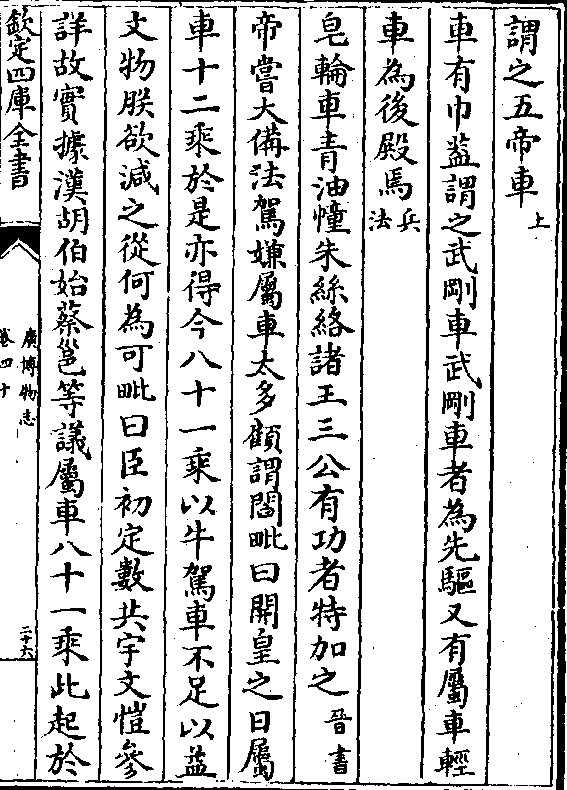 謂之五帝車上
車有巾葢謂之武剛車武剛車者為先驅又有屬車輕
車為後殿焉兵法
皂輪車青油幢朱絲絡諸王三公有功者特加之晉書
帝嘗大備法駕嫌屬車太多顧謂閻毗曰開皇之日屬
車十二乘於是亦得今八十一乘以牛駕車不足以益
文物朕欲減之從何為可毗曰臣初定數共宇文愷參
詳故實據漢胡伯始蔡邕等議屬車八十一乘此起於
欽定四庫全書
廣博物志
卷四十
二十六